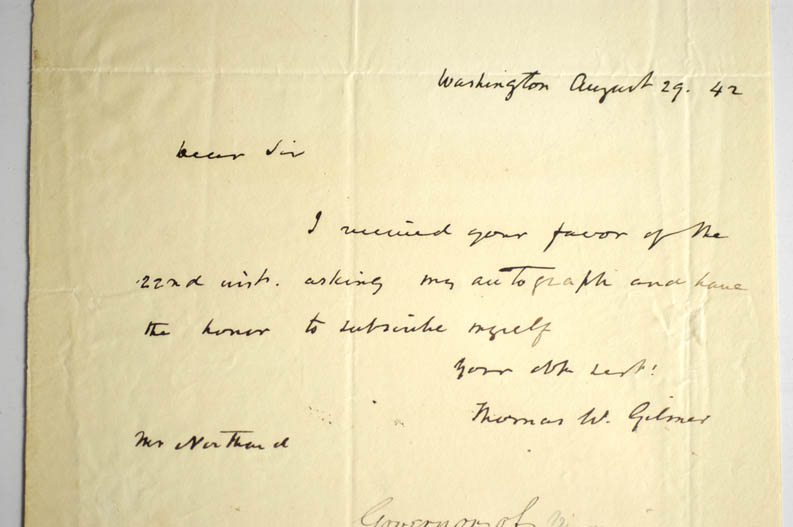 Washington August 29. 42
Dear Sir
I received your favor of the
22nd inst. asking my autograph and have
the honor to subscribe myself
Your obt servt:
Thomas W. Gilmer
Mr
Governor of